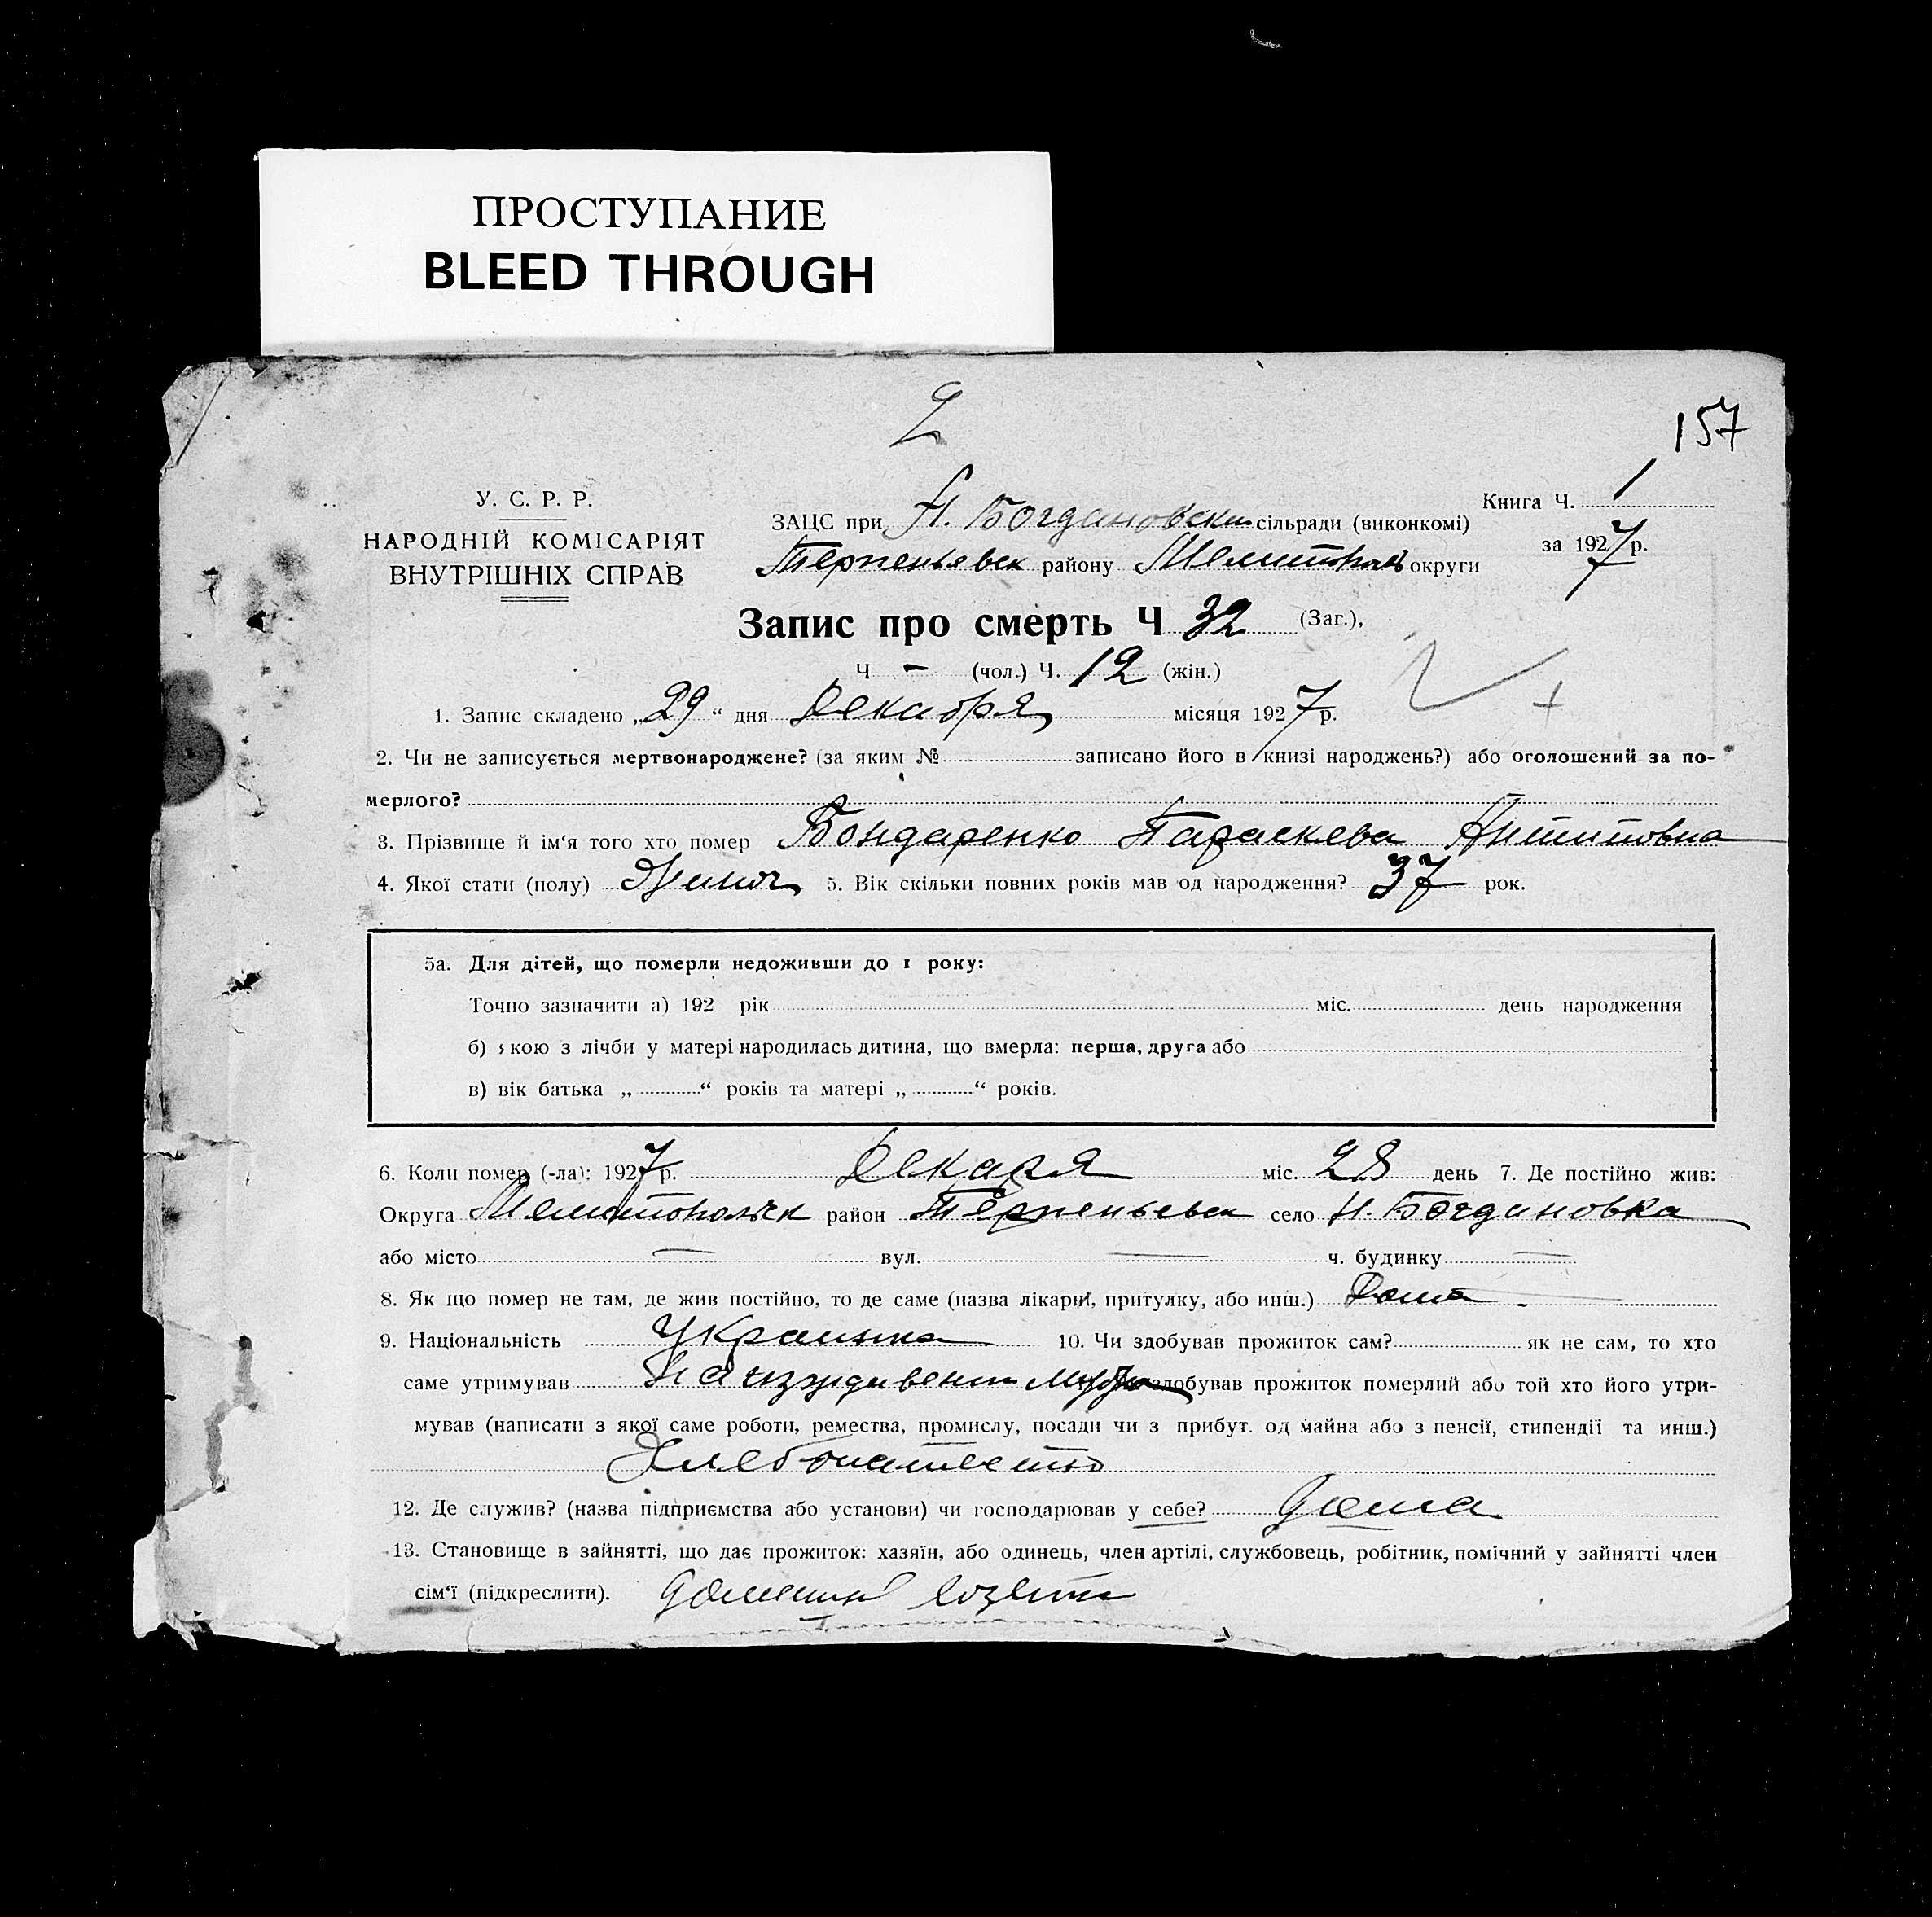 ПРОСТУПАНИЕ
BLEED THROUGH
2
157
У. С. Р. Р.
НАРОДНІЙ КОМІСАРІЯТ
ВНУТРІШНІХ СПРАВ
Книга Ч. 1
за 1927 р.
ЗАЦС при Н. Богдановски сільради (виконкомі)
Терпеньевск району Мелитополь округи
Запис про смерть Ч 32 (Заг.),
Ч - (чол.) Ч. 12 (жін.)
1. Запис складено „29“ дня Декабря місяця 1927 р.
2. Чи не записується мертвонароджене? (за яким № записано його в книзі народжень?) або оголошений за по-
мерлого?
3. Прізвище й ім‘я того хто помер Бондаренко Параскева Антиповна
4. Якої стати (полу) 5. Вік скільки повних років мав од народження? 37 рок.
5а. Для дітей, що померли недоживши до 1 року:
Точно зазначити а) 192 рік міс. день народження
б) якою з лічби у матері народилась дитина, що вмерла: перша, друга або
в) вік батька „ “ років та матері „ “ років.
6. Коли помер (-ла): 1927 р. Декаря міс. 28 день 7. Де постійно жив:
Округа Мелитопольск район Терпеньевск село Н. Богдановка
або місто — вул. — ч. будинку —
8. Як що помер не там, де жив постійно, то де саме (назва лікарні, притулку, або инш.) Дома
9. Національність Украинка 10. Чи здобував прожиток сам? як не сам, то хто
саме утримував На иждивении мужа здобував прожиток померлий або той хто його утри-
мував (написати з якої саме роботи, ремества, промислу, посади чи з прибут. од майна або з пенсії, стипендії та инш.)
12. Де служив? (назва підприємства або установи) чи господарював у себе? дома
13. Становище в зайнятті, що дає прожиток: хазяїн, або одинець, член артілі, службовець, робітник, помічний у зайнятті член
сім‘ї (підкреслити).